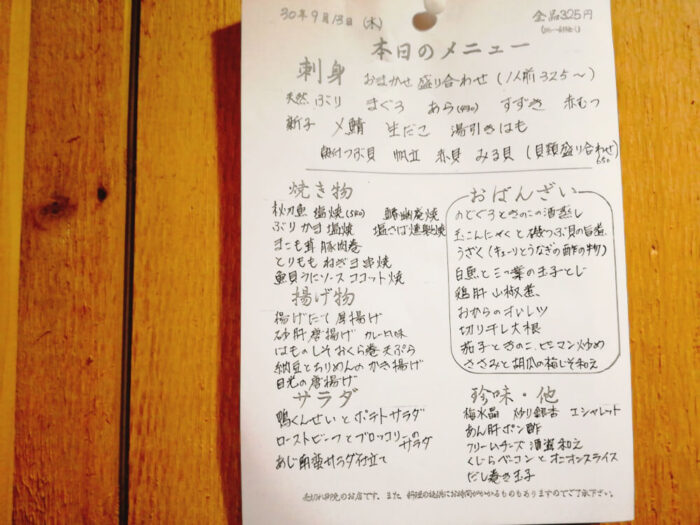 30年9月13日(木)
全品325円
本日のメニュー
刺身 おまかせ 盛り合わせ (1人前 325〜)
天然ぶり まぐろ あら すずき 赤むつ
新子 〆鯖 生だこ 湯引きはも
つぶ貝 帆立 赤貝 みる貝 (貝類盛り合わせ 650
焼き物
秋刀魚 塩焼(580) 鯖幽庵焼
ぶりかま塩焼 塩さば燻製焼
豚肉巻
とりもも ねぎま串焼
魚貝うにソース ココット焼
揚げ物
揚げたて厚揚げ
砂肝唐揚げ カレー風味
はものしそおくら巻天ぷら
納豆とちりめんのかき揚げ
目光の唐揚げ
サラダ
鴨くんせいとポテトサラダ
ローストビーフとブロッコリーのサラダ
あじ南蛮サラダ仕立て
おばんざい
のどぐろときのこの酒蒸し
玉こんにゃくと磯つぶ貝の旨煮
うざく(キューリとうなぎの酢の物)
白魚と三つ葉の玉子とじ
鶏肝山椒煮
おからのオムレツ
切り干し大根
茄子ときのこ、ピーマン炒め
ささみと胡瓜の梅しそ和え
珍味・他
梅水晶 炒り銀杏 エシャレット
あん肝ポン酢
クリームチーズ 酒盗和え
くじらベーコンとオニオンスライス
だし巻き玉子
売切れ御免のお店です。また 料理の提供にお時間がかかるものもありますのでご了承下さい。